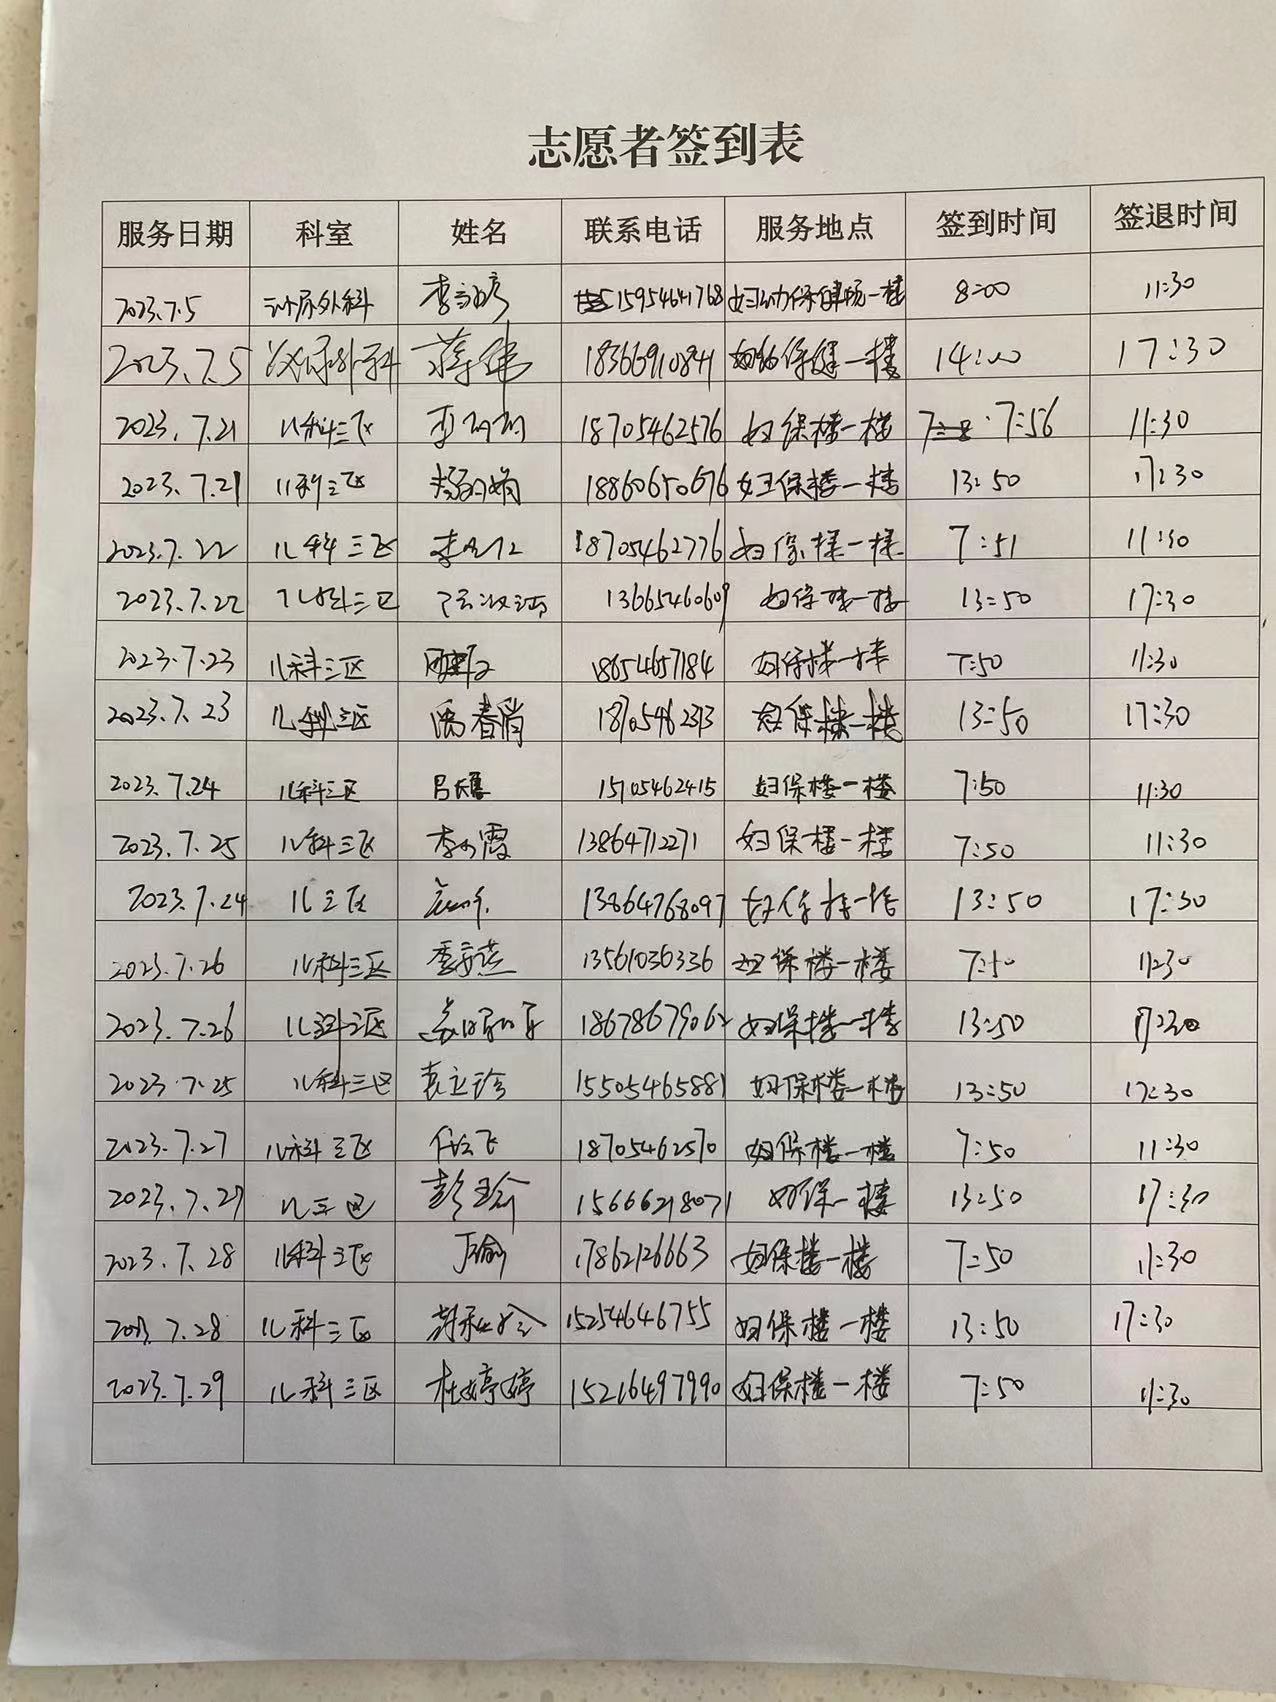 志愿者签到表
服务日期 科室 姓名 联系电话 服务地点 签到时间 签退时间
2023.7.5 泌尿外科 15954641768 妇幼保健院一楼 8:00 11:30
2023.7.5 泌尿外科 蒋伟 18366910841 妇幼保健一楼 14:00 17:30
2023.7.21 儿科三区 18705462576 妇保楼一楼 7:56 11:30
2023.7.21 儿科三区 18860650676 妇保楼一楼 13:50 17:30
2023.7.22 儿科三区 18705462776 妇保楼一楼 7:51 11:30
2023.7.22 儿科三区 13665460609 妇保楼一楼 13:50 17:30
2023.7.23 儿科三区 18654657184 妇保楼一楼 7:50 11:30
2023.7.23 儿科三区 妇保楼一楼 13:50 17:30
2023.7.24 儿科三区 15705462415 妇保楼一楼 7:50 11:30
2023.7.25 儿科三区 13864712271 妇保楼一楼 7:50 11:30
2023.7.24 儿三区 13864768097 妇保楼一楼 13:50 17:30
2023.7.26 儿科三区 13561036336 妇保楼一楼 7:50 11:30
2023.7.26 儿科三区 18678679062 妇保楼一楼 13:50 17:30
2023.7.25 儿科三区 袁立珍 15505465881 妇保楼一楼 13:50 17:30
2023.7.27 儿科三区 18705462570 妇保楼一楼 7:50 11:30
2023.7.27 儿三区 15666218071 妇保一楼 13:50 17:30
2023.7.28 儿科三区 17862126663 妇保楼一楼 7:50 11:30
2023.7.28 儿科三区 15254646755 妇保楼一楼 13:50 17:30
2023.7.29 儿科三区 杜婷婷 15216497990 妇保楼一楼 7:50 11:30